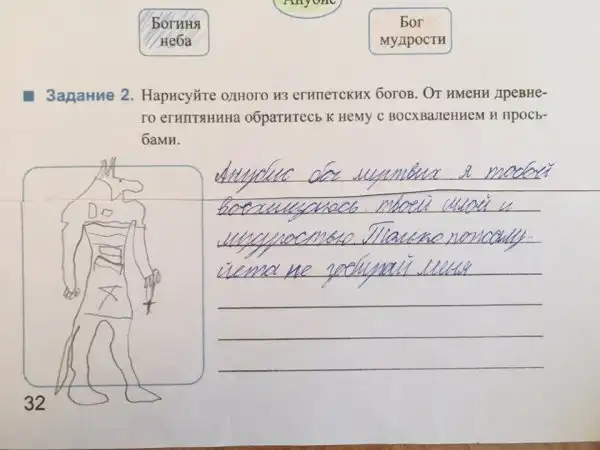 Анубис
Богиня
неба
Бог
мудрости
Задание 2. Нарисуйте одного из египетских богов. От имени древне-
го египтянина обратитесь к нему с восхвалением и прось-
бами.
Анубис бог мертвых я тобой
восхищаюсь твоей силой и
мудростью Только пожалу-
йста не забирай меня
32